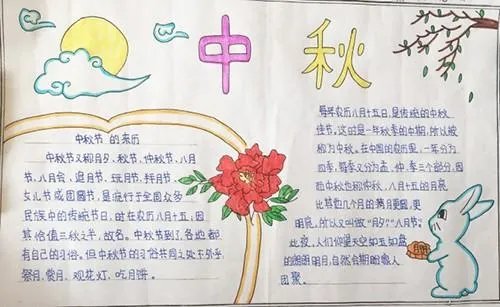 中秋
中秋节 的来历
中秋节又称月夕、秋节、仲秋节、八月
节、八月会、追月节、玩月节、拜月节、
女儿节或团圆节,是流行于全国众多
民族中的传统节日,时在农历八月十五;因
其恰值三秋之半,故名。中秋节到了,各地都
有自己的习俗。但中秋节的习俗共同之处不外乎
祭月、赏月、观花灯、吃月饼。
每年农历八月十五日,是传统的中秋
佳节。这时是一年秋季的中期,所以被
称为中秋。在中国的农历里,一年分为
四季,每季又分为孟、仲、季三个部分,因
而中秋也称仲秋。八月十五的月亮
比其他几个月的满月更圆,更
明亮,所以又叫做“月夕”“八月节”。
此夜,人们仰望天空如玉如盘
的朗朗明月,自然会期盼家人
团聚。